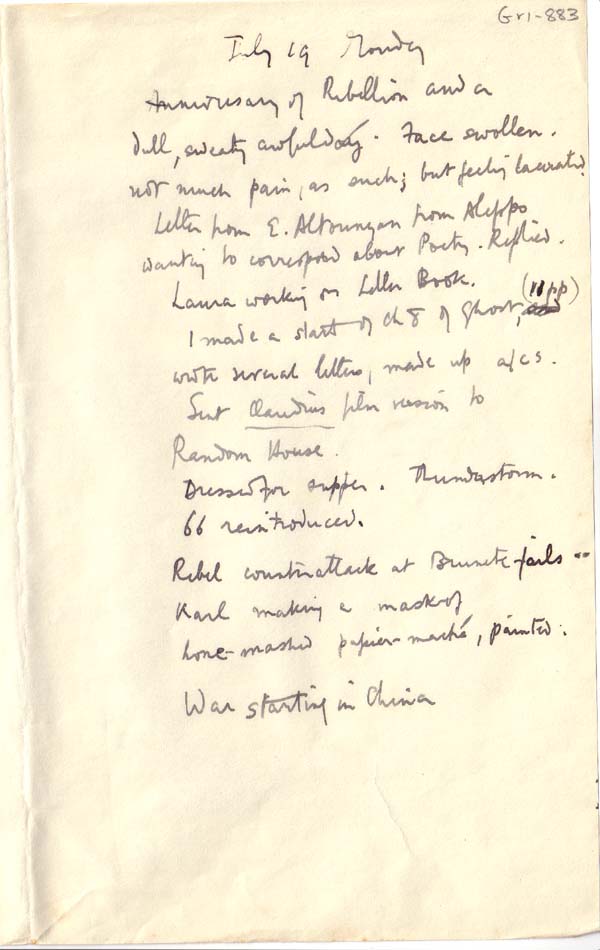 Gr1-883
July 19 Monday
Anniversary of Rebellion and a
dull, sweaty awful day. Face swollen.
not much pain, as such; but feeling lacerated.
Letter from E. Altounyan from Aleppo
wanting to correspond about Poetry. Replied.
Laura working on Letter Book.
I made a start of ch 8 of Ghost, (11 pp)
wrote several letters, made up a/cs.
Sent Claudius film version to
Random House.
Dressed for supper. Thunderstorm.
66 reintroduced.
Rebel counterattack at Brunete fails --
Karl making a mask of
home-mashed papier-maché, painted.
War starting in China